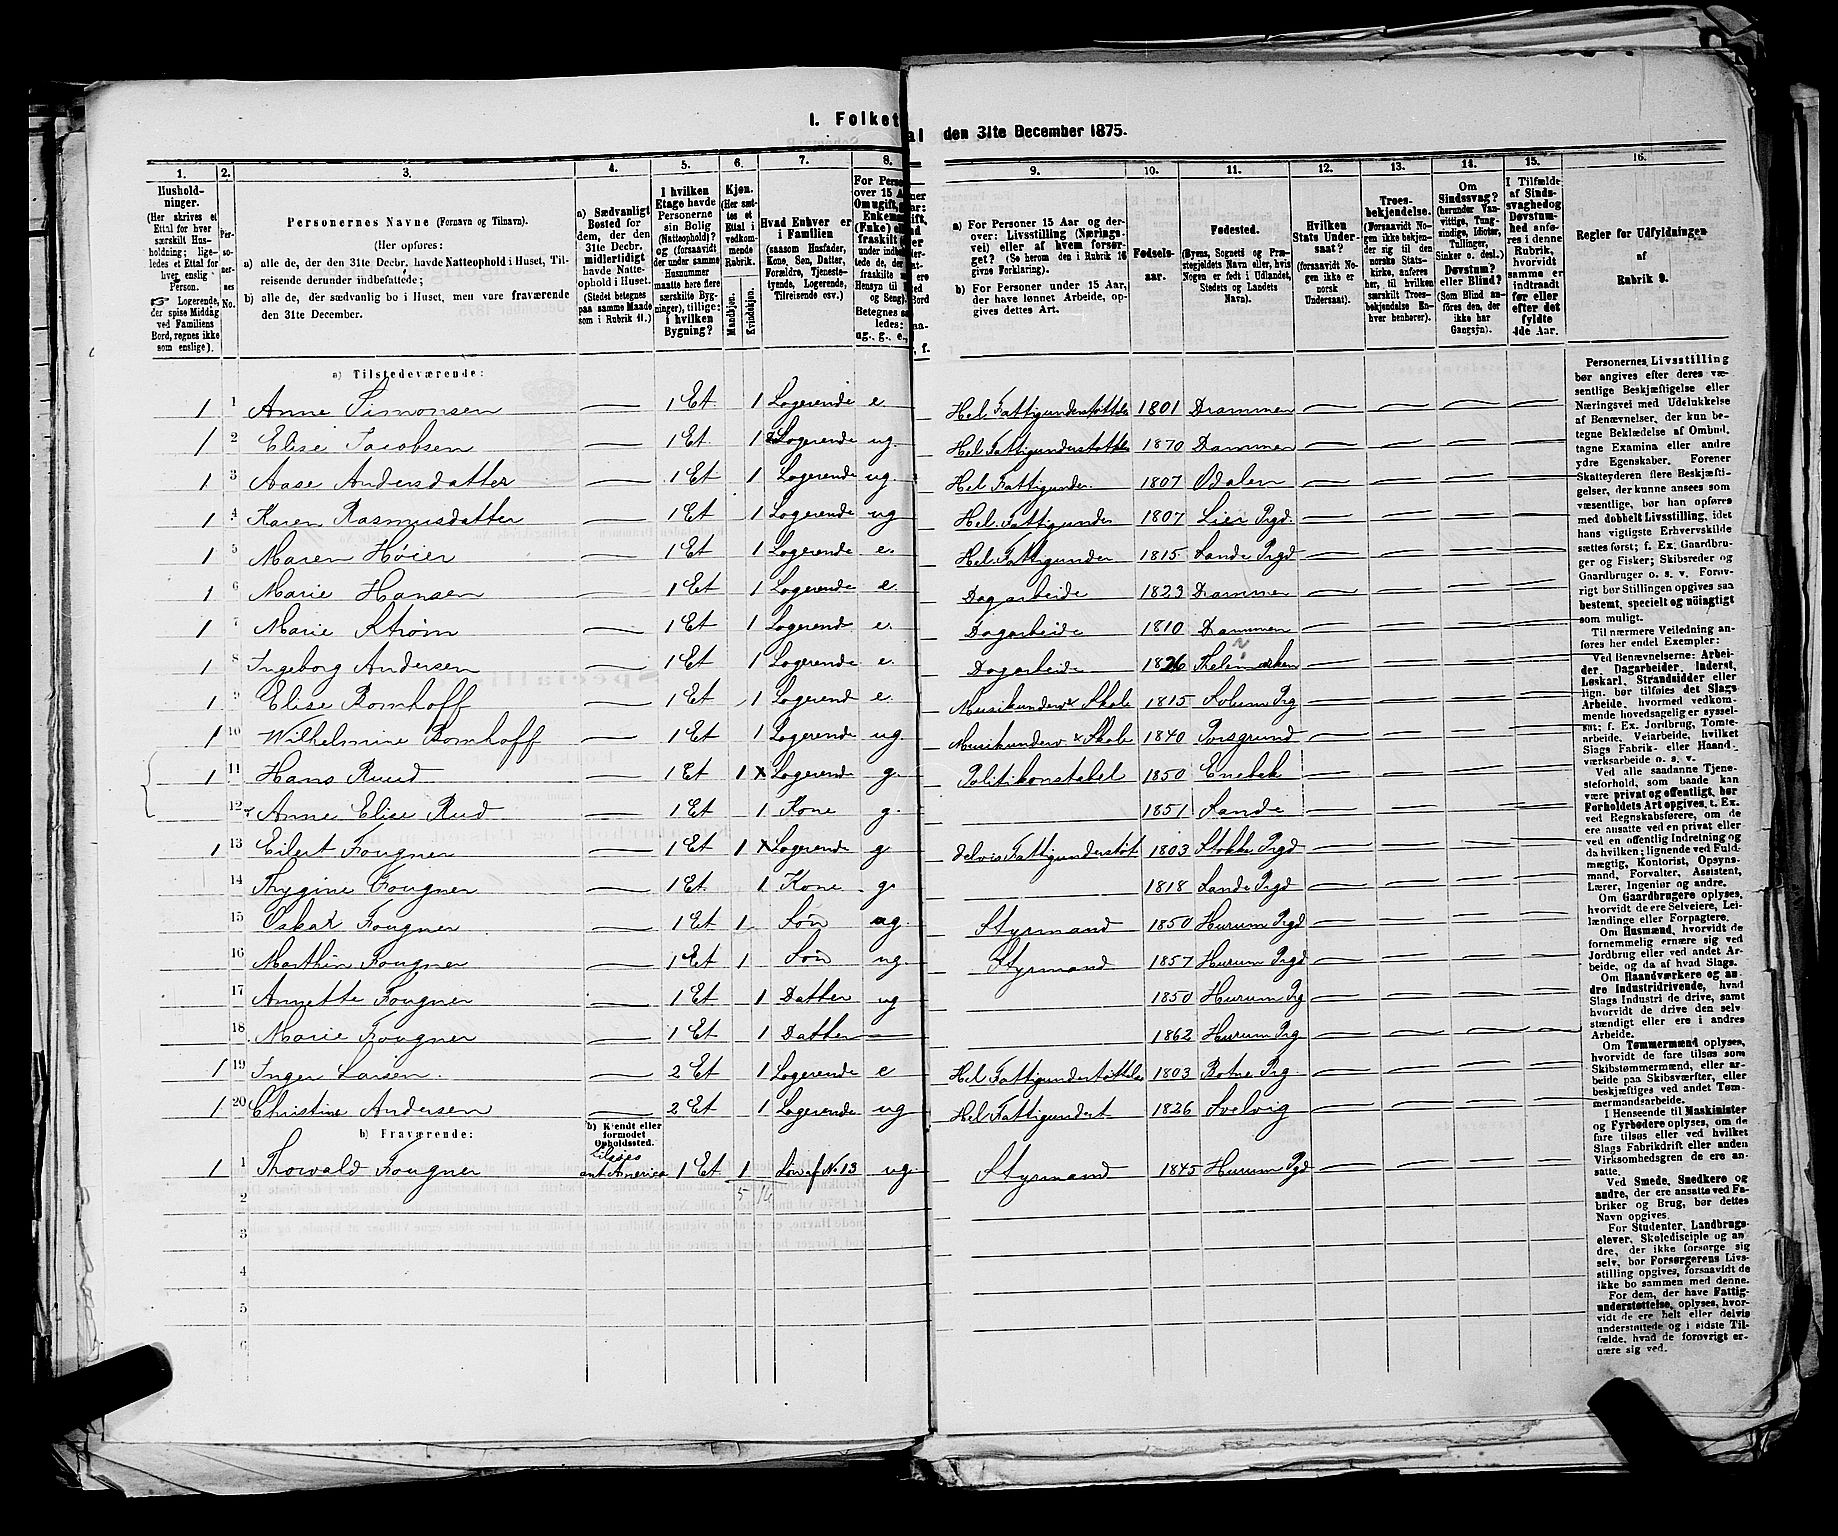 I. Folketal den 31te December 1875.
1. 2. 3. 4. 5. 6. 7. 8. 9. 10. 11. 12. 13. 14. 15. 16.
Husholdninger. (Her skrives et Ettal for hver særskilt Husholdning; ligeledes et Ettal for hver enslig Person. ☞ Logerende, der spise Middag ved Familiens Bord, regnes ikke som enslige).
Personernes No.
Personernes Navne (Fornavn og Tilnavn).
(Her opføres:
a) alle de, der den 31te Decbr. havde Natteophold i Huset, Tilreisende derunder indbefattede;
b) alle de, der sædvanlig bo i Huset, men vare fraværende den 31te December.
a) Sædvanligt Bosted for dem, der den 31te Decbr. midlertidigt havde Natteophold i Huset. (Stedet betegnes paa samme Maade som i Rubrik 11.)
I hvilken Etage havde Personerne sin Bolig (Natteophold)? & (forsaavidt der under samme Husnummer maatte høre flere særskilte Bygninger), tillige: i hvilken Bygning?
Kjøn. (Her sættes et Ettal i vedkommende Rubrik.
Mandkjøn. Kvindekjøn.
Hvad Enhver er i Familien (saasom Husfader, Kone, Søn, Datter, Forældre, Tjenestetyende, Logerende, Tilreisende osv.)
a) For Personer 15 Aar og derover: Livsstilling (Næringsvei) eller af hvem forsørget? (Se herom den i Rubrik 16 givne Forklaring).
b) For Personer under 15 Aar, der have lønnet Arbeide, opgives dettes Art.
Fødselsaar.
Fødested. (Byens, Sognets og Præstegjeldets Navn eller, hvis Nogen er født i Udlandet, Stedets og Landets Navn).
Hvilken Stats Undersaat? (forsaavidt Nogen ikke er norsk Undersaat).
Troesbekjendelse. (Forsaavidt Nogen ikke bekjender sig til den norske Statskirke, anføres her, til hvilket særskilt Troesbekjendelse Enhver henhører).
Om Sindssvag? (herunder Vanvittige, Tungsindige, Idioter, Tullinger, Sinker o. desl.) Døvstum? eller Blind? (Som Blind anføres den, der ikke har Gangsyn).
I Tilfælde af Sindssvaghed og Døvstumhed anføres i denne Rubrik, hvorvidt samme er indtraadt før eller efter det fyldte 4de Aar.
Regler for Udfyldningen af Rubrik 9.
a) Tilstedeværende:
1 1 Anne Simonsen — 1 Et 1 Logerende e Hel Fattigunderstøttelse 1801 Drammen
1 2 Elise Jacobsen — 1 Et 1 Logerende ug. Hel Fattigunderstøttelse 1870 Drammen
1 3 Aase Andersdatter — 1 Et 1 Logerende ug. Hel Fattigunder. 1807 Odalen
1 4 Karen Rasmusdatter — 1 Et 1 Logerende ug Hel. Fattigunder 1807 Lier Prgd.
1 5 Maren Høier — 1 Et 1 Logerende e. Hel. Fattigunder 1815 Sande Prgd
1 6 Marie Hansen — 1 Et 1 Logerende e. Dagarbeide 1823 Drammen
1 7 Marie Strøm — 1 Et 1 Logerend e. Dagarbeide 1810 Drammen
1 8 Ingeborg Andersen — 1 Et 1 Logerende e. Dagarbeide 1826 Thelemarken
1 9 Elise Romhoff — 1 Et 1 Logerend e. Musikunderv & Skole 1815 Solum Prg
1 10 Wilhelmine Romhoff — 1 Et 1 Logerende ug Musikunderv & Skole 1840 Porsgrund
1 11 Hans Ruud — 1 Et 1 x Logerende g. Politikonstabel 1850 Enebak
12 Anne Elise Rud — 1 Et 1 Kone g. 1851 Sande
1 13 Eilert Fougner — 1 Et 1 x Logerende g delvis Fattigunderstøt 1803 Stokke Prgd
14 Thrygine Fougner — 1 Et. 1 Kone g. 1818 Sande Prgd
15 Oskar Fougner — 1 Et 1 Søn ug. Styrmand 1850 Hurum Prgd
16 Marthin Fougner — 1 Et 1 Søn ug. Styrmand 1857 Hurum Prgd
17 Annette Fougner — 1 Et 1 Datter ug 1850 Hurum Prg
18 Marie Fougner — 1 Et 1 Datter — 1862 Hurum Prg
1 19 Inger Larsen. — 2 Et 1 Logerende e Hel Fattigunderstøttelse 1803 Botne Prg
1 20 Christine Andersen — 2 Et 1 Logerende ug Hel Fattigunderst 1826 Svelvig
b) Fraværende:
b) Kjendt eller formodet Opholdssted.
1 1 Thorvald Fougner tilsøes ant America 1 Et 1 Søn af No 13 ug. Styrmand 1845 Hurum Pgd
2 5 14
3
4
5
6
Personernes Livsstilling bør angives efter deres væsentlige Beskjæftigelse eller Næringsvei med Udelukkelse af Benævnelser, der kun betegne Beklædelse af Ombud, tagne Examina eller andre ydre Egenskaber. Forener Skatteyderen flere Beskjæftigelser, der kunne ansees som væsentlige, bør han opføres med dobbelt Livsstilling, idet hans vigtigste Erhvervskilde sættes først; f. Ex. Gaardbruger og Fisker; Skibsreder og Gaardbruger o. s. v. Forøvrigt bør Stillingen opgives saa bestemt, specielt og nöiagtigt som muligt.
Til nærmere Veiledning anføres her endel Exempler:
Ved Benævnelserne: Arbeider, Dagarbeider, Inderst, Løskarl, Strandsidder eller lign. bør tilføies det Slags Arbeide, hvormed vedkommende hovedsagelig er sysselsat; f. Ex. Jordbrug, Tomtearbeide, Veiarbeide, hvilket Slags Fabrik- eller Haandværksarbeide o. s. v.
Ved alle saadanne Tjenesteforhold, som baade kan være privat og offentligt, bør Forholdets Art opgives, t. Ex. ved Regnskabsførere, om de ere ansatte ved en privat eller ved en offentlig Indretning og da hvilken; lignende ved Fuldmægtig, Kontorist, Opsynsmand, Forvalter, Assistent, Lærer, Ingeniør og andre.
Om Gaardbrugere oplyses, hvorvidt de ere Selveiere, Leilændinge eller Forpagtere.
Om Husmænd, hvorvidt de fornemmelig ernære sig ved Jordbrug eller ved andet Arbeide, og da af hvad Slags.
Om Haandværkere og andre Industridrivende, hvad Slags Industri de drive, samt hvorvidt de drive den selvstændigt eller ere i andres Arbeide.
Om Tømmermænd oplyses, hvorvidt de fare tilsøs som Skibstømmermænd, eller arbeide paa Skibsværfter, eller beskjæftiges ved andet Tømmermandsarbeide.
I Henseende til Maskinister og Fyrbødere oplyses, om de fare tilsøs eller ved hvilket Slags Fabrikdrift eller anden Virksomhedsgren de ere ansatte.
Ved Smede, Snedkere og andre, der ere ansatte ved Fabriker og Brug, bør dettes Navn opgives.
For Studenter, Landbrugselever, Skoledisciple og andre, der ikke forsørge sig selv, bør Forsørgerens Livsstilling opgives, forsaavidt de ikke bo sammen med denne.
For dem, der have Fattigunderstøttelse, oplyses, hvorvidt de ere helt eller delvis understøttede og i sidste Tilfælde, hvad de forøvrigt ernære sig ved.